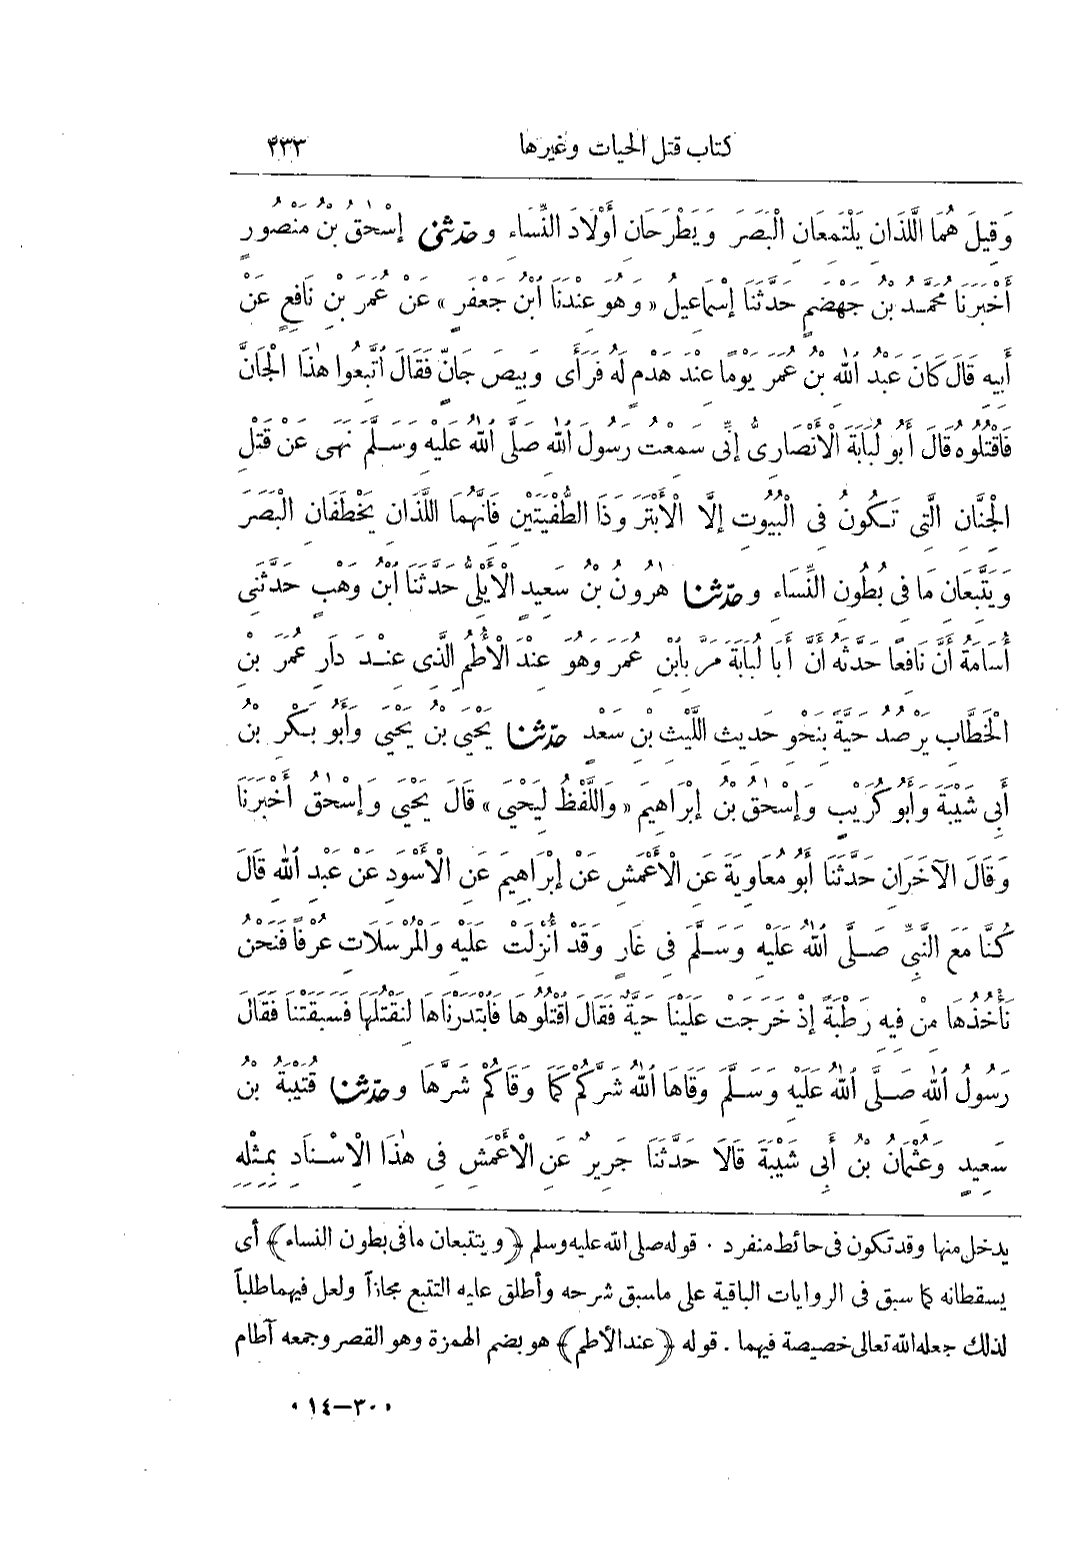 كتاب قتل الحيات وغيرها ٢٣٣
وَقِيلَ هُمَا اللَّذَانِ يَلْتَمِعَانِ الْبَصَرَ وَيَطْرَحَانِ أَوْلَادَ النِّسَاءِ و حَدَّثَنِى إِسْحٰقُ بْنُ مَنْصُورٍ
أَخْبَرَنَا مُحَمَّدُ بْنُ جَهْضَمٍ حَدَّثَنَا إِسْمَاعِيلُ « وَهُوَ عِنْدَنَا ابْنُ جَعْفَرٍ » عَنْ عُمَرَ بْنِ نَافِعٍ عَنْ
أَبِيهِ قَالَ كَانَ عَبْدُ اللهِ بْنُ عُمَرَ يَوْمًا عِنْدَ هَدْمٍ لَهُ فَرَأَى وَبِيصَ جَانٍّ فَقَالَ اتَّبِعُوا هٰذَا الْجَانَّ
فَاقْتُلُوهُ قَالَ أَبُو لُبَابَةَ الْأَنْصَارِىُّ إِنِّى سَمِعْتُ رَسُولَ اللهِ صَلَّى اللهُ عَلَيْهِ وَسَلَّمَ نَهَى عَنْ قَتْلِ
الْجِنَّانِ الَّتِى تَكُونُ فِى الْبُيُوتِ إِلَّا الْأَبْتَرَ وَذَا الطُّفْيَتَيْنِ فَإِنَّهُمَا اللَّذَانِ يَخْطَفَانِ الْبَصَرَ
وَيَتَتَبَّعَانِ مَا فِى بُطُونِ النِّسَاءِ و حَدَّثَنَا هٰرُونُ بْنُ سَعِيدٍ الْأَيْلِىُّ حَدَّثَنَا ابْنُ وَهْبٍ حَدَّثَنِى
أُسَامَةُ أَنَّ نَافِعًا حَدَّثَهُ أَنَّ أَبَا لُبَابَةَ مَرَّ بِابْنِ عُمَرَ وَهُوَ عِنْدَ الْأُطُمِ الَّذِى عِنْدَ دَارِ عُمَرَ بْنِ
الْخَطَّابِ يَرْصُدُ حَيَّةً بِنَحْوِ حَدِيثِ اللَّيْثِ بْنِ سَعْدٍ حَدَّثَنَا يَحْيَى بْنُ يَحْيَى وَأَبُو بَكْرِ بْنُ
أَبِى شَيْبَةَ وَأَبُو كُرَيْبٍ وَإِسْحٰقُ بْنُ إِبْرَاهِيمَ « وَاللَّفْظُ لِيَحْيَى » قَالَ يَحْيَى وَإِسْحٰقُ أَخْبَرَنَا
وَقَالَ الْآخَرَانِ حَدَّثَنَا أَبُو مُعَاوِيَةَ عَنِ الْأَعْمَشِ عَنْ إِبْرَاهِيمَ عَنِ الْأَسْوَدِ عَنْ عَبْدِ اللهِ قَالَ
كُنَّا مَعَ النَّبِىِّ صَلَّى اللهُ عَلَيْهِ وَسَلَّمَ فِى غَارٍ وَقَدْ أُنْزِلَتْ عَلَيْهِ وَالْمُرْسَلَاتِ عُرْفًا فَنَحْنُ
نَأْخُذُهَا مِنْ فِيهِ رَطْبَةً إِذْ خَرَجَتْ عَلَيْنَا حَيَّةٌ فَقَالَ اقْتُلُوهَا فَابْتَدَرْنَاهَا لِنَقْتُلَهَا فَسَبَقَتْنَا فَقَالَ
رَسُولُ اللهِ صَلَّى اللهُ عَلَيْهِ وَسَلَّمَ وَقَاهَا اللهُ شَرَّكُمْ كَمَا وَقَاكُمْ شَرَّهَا و حَدَّثَنَا قُتَيْبَةُ بْنُ
سَعِيدٍ وَعُثْمَانُ بْنُ أَبِى شَيْبَةَ قَالَا حَدَّثَنَا جَرِيرٌ عَنِ الْأَعْمَشِ فِى هٰذَا الْإِسْنَادِ بِمِثْلِهِ
يدخل منها وقد تكون فى حائط منفرد . قوله صلى الله عليه وسلم ﴿ويتتبعان ما فى بطون النساء﴾ أى
يسقطانه كما سبق فى الروايات الباقية على ماسبق شرحه وأطلق عليه التتبع مجازاً ولعل فيهما طلباً
لذلك جعله الله تعالى خصيصة فيهما . قوله ﴿عند الأطم﴾ هو بضم الهمزة وهو القصر وجمعه آطام
«٣٠-١٤»